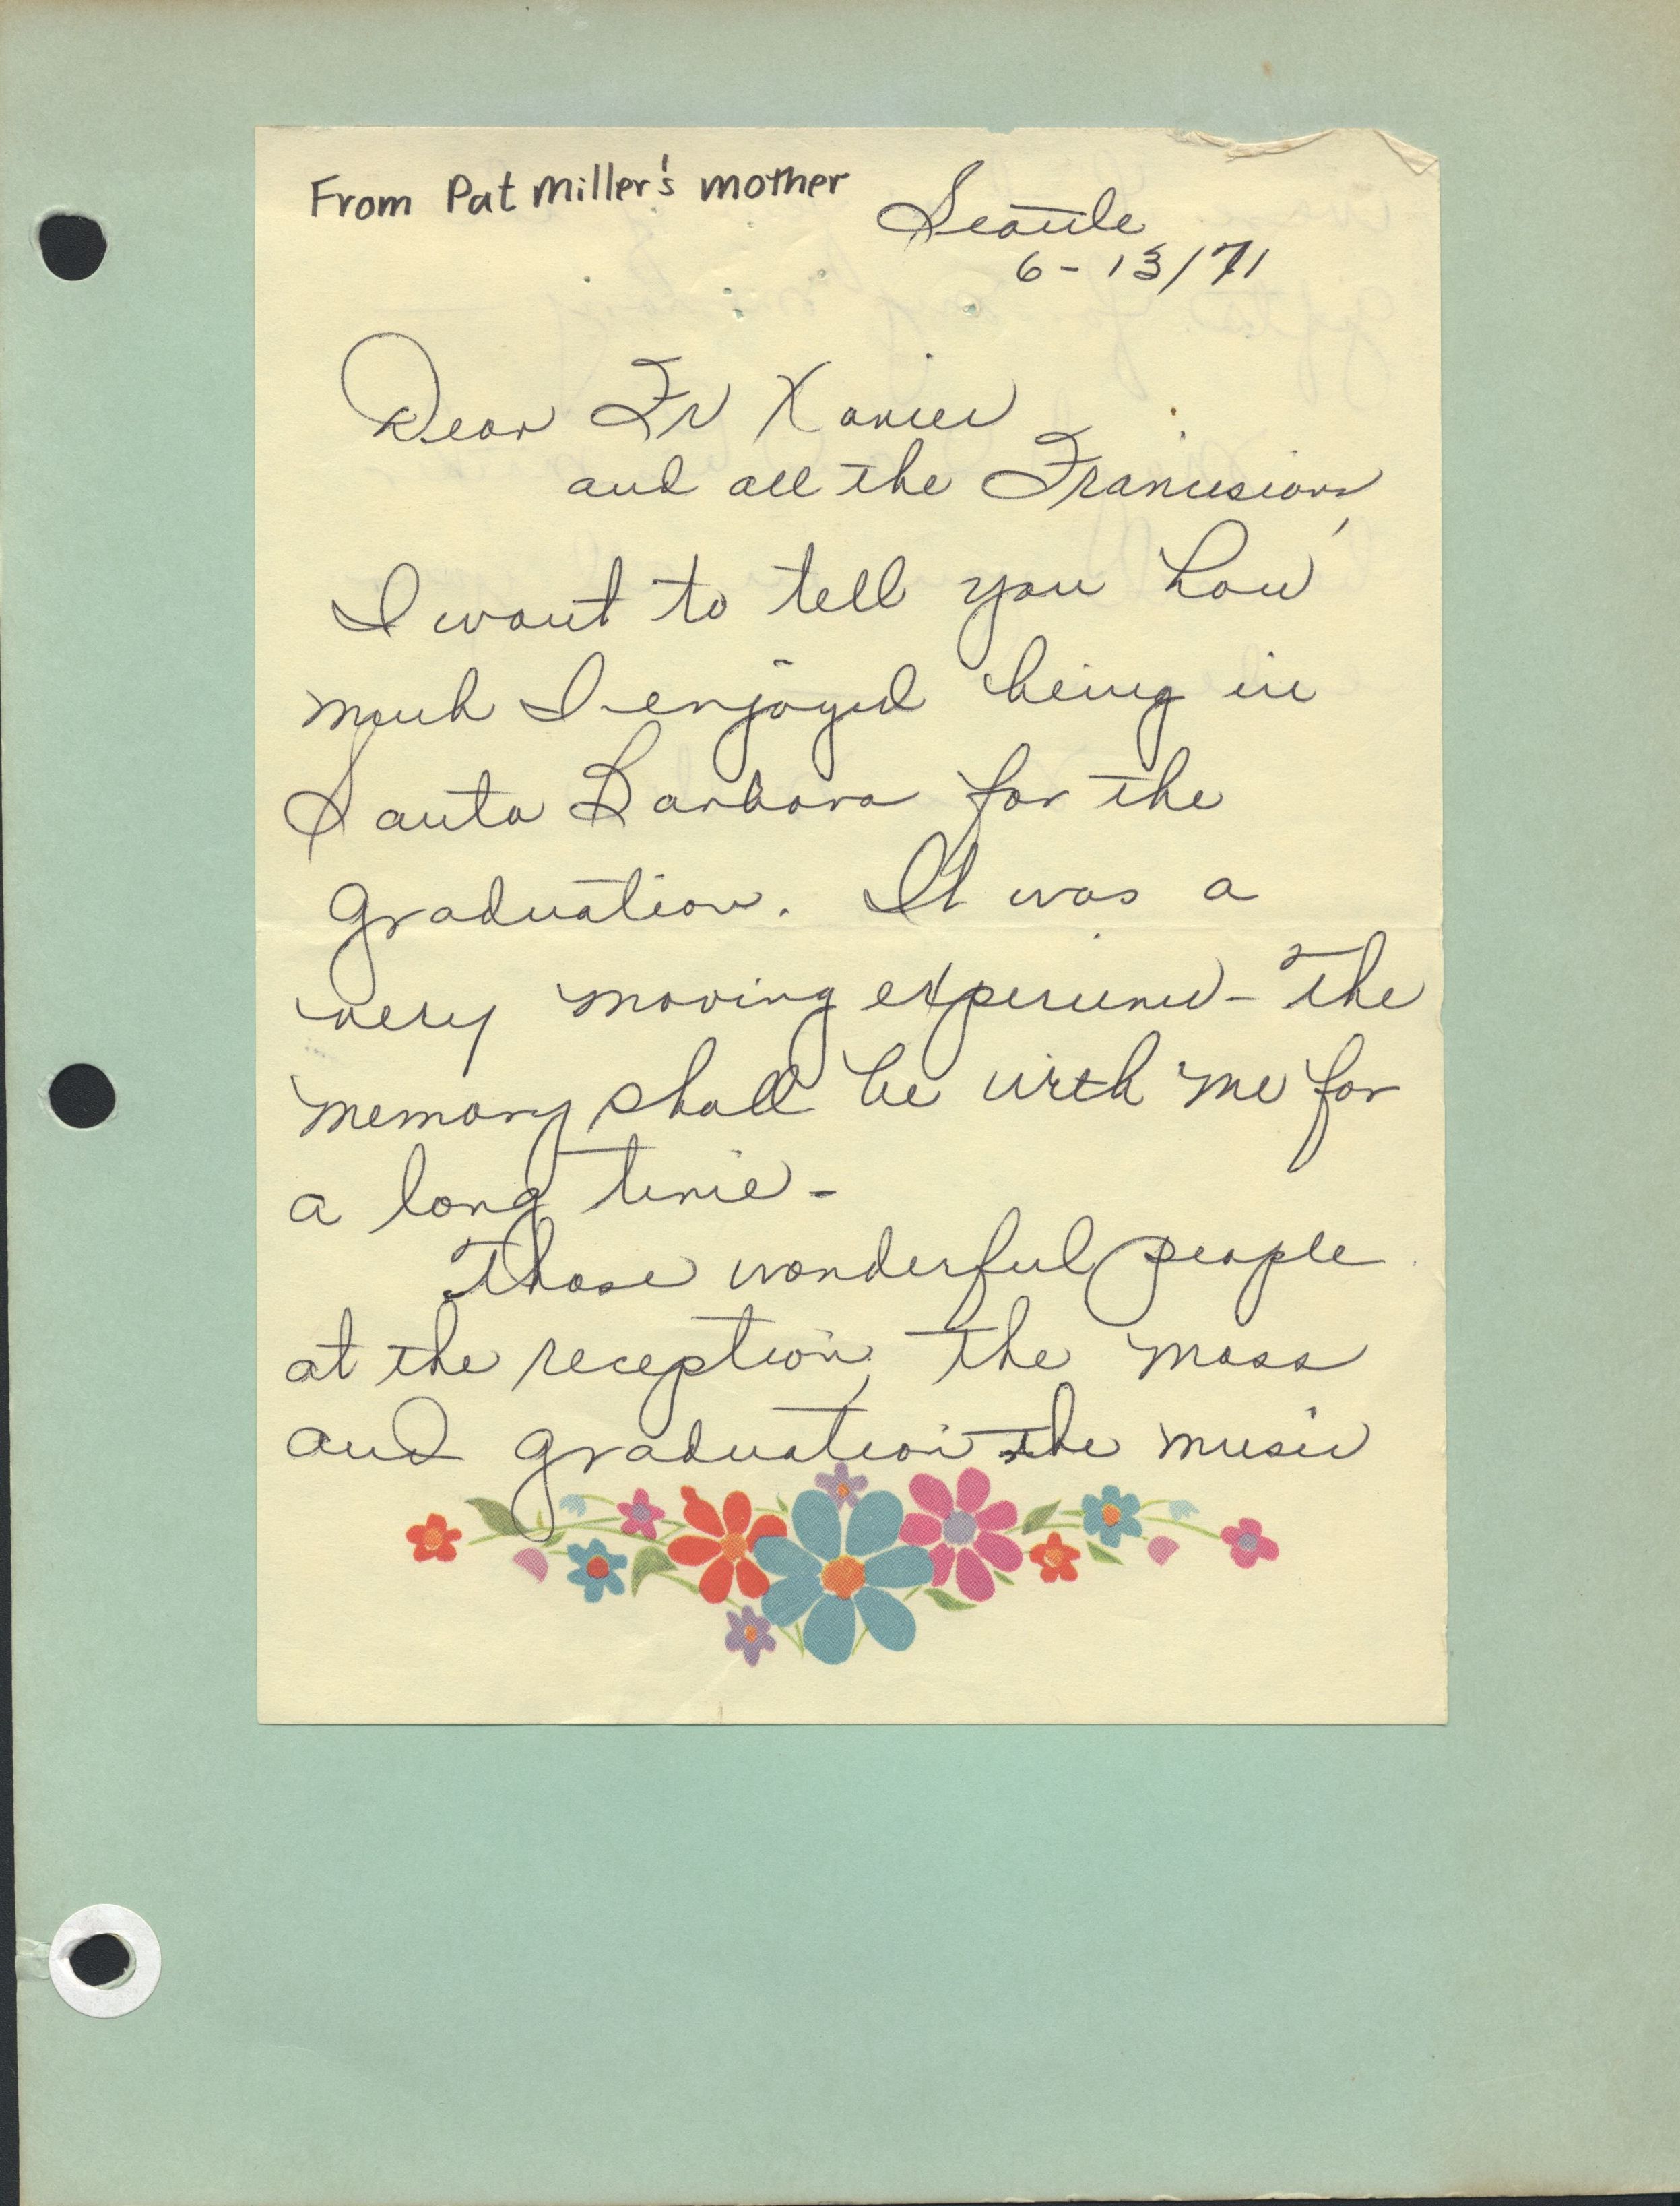 From Pat Miller's mother
Seattle
6-13/71
Dear Fr Xavier
and all the Franciscans,
I want to tell you how
much I enjoyed being in
Santa Barbara for the
graduation. It was a
very moving experience - The
memory shall be with me for
a long time -
Those wonderful people
at the reception, the mass
and graduation the music